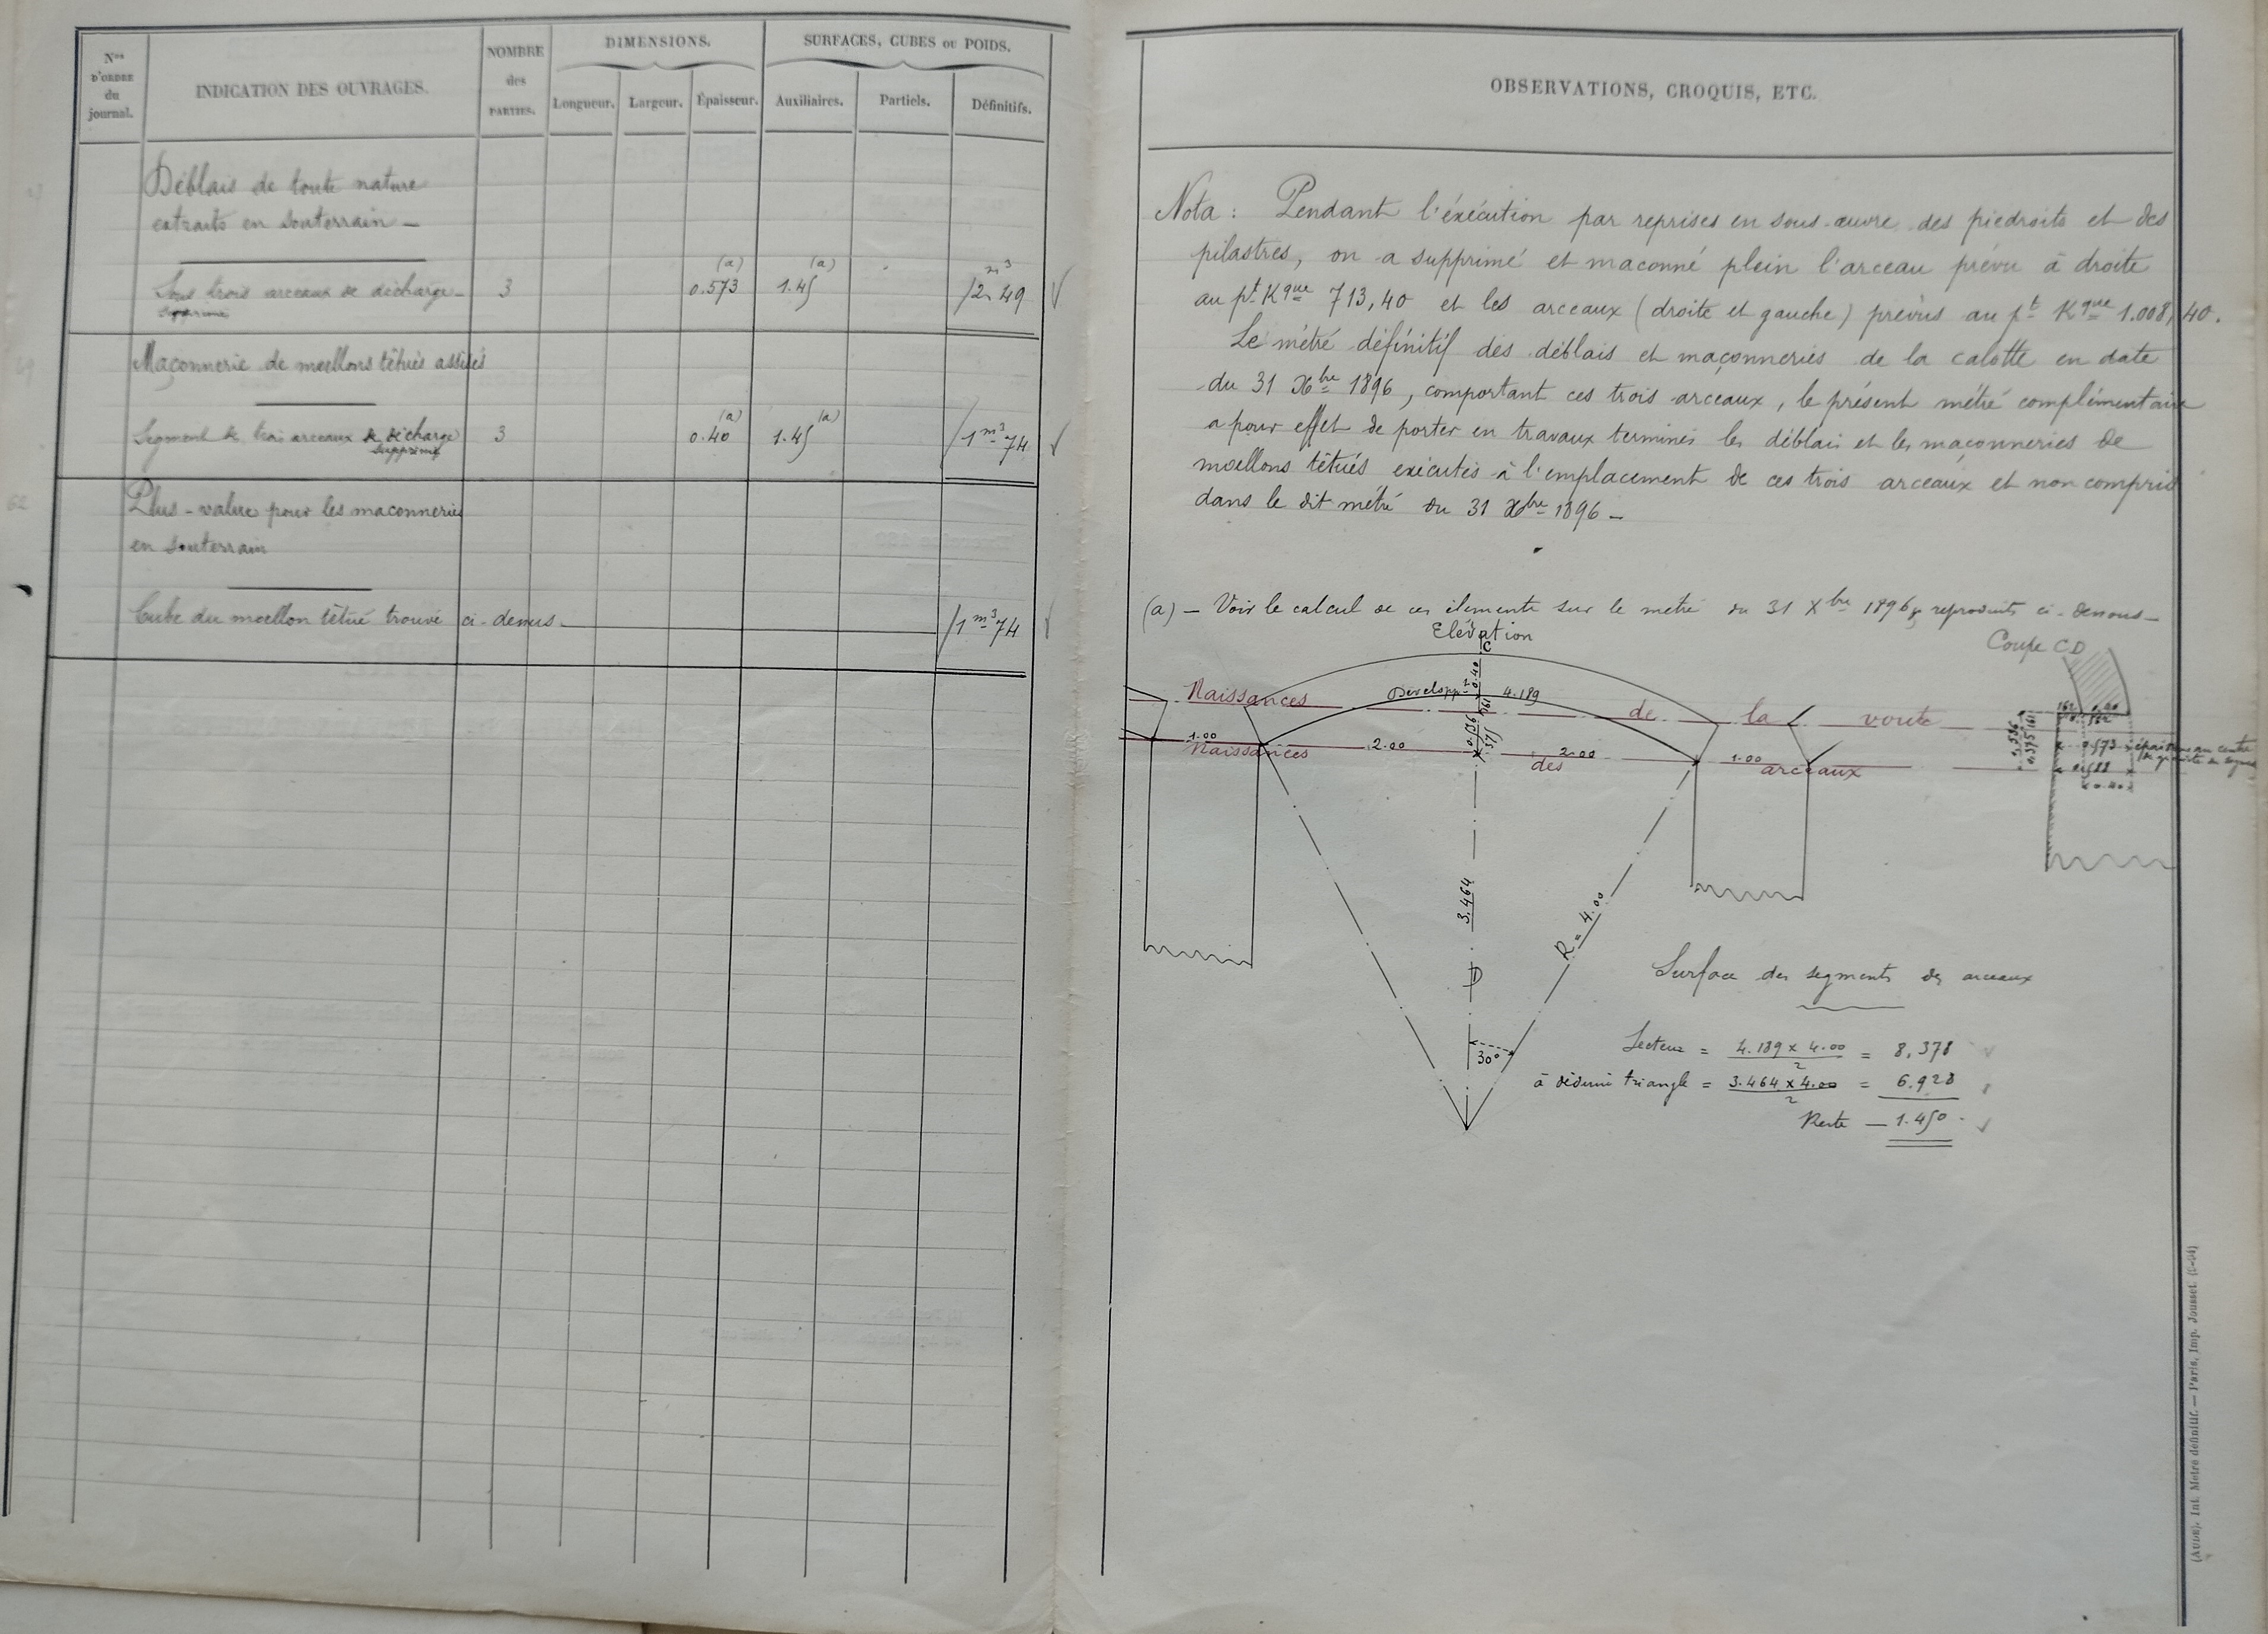 Nos D'ORDRE du journal.
INDICATION DES OUVRAGES.
NOMBRE des PARTIES.
DIMENSIONS.
Longueur. Largeur. Épaisseur.
SURFACES, CUBES ou POIDS.
Auxiliaires. Partiels. Définitifs.
Déblais de toute nature
extraits en souterrain —
(a) (a) m3
Sous trois arceaux de décharge 3 0.573 1.45 2.49
supprimés
Maçonnerie de moellons têtués assisés
(a) (a)
Segment de trois arceaux de décharge 3 0.40 1.45 1m3 74
supprimés
Plus-value pour les maçonneries
en souterrain
Cube du moellon têtué trouvé ci-dessus 1m3 74
OBSERVATIONS, CROQUIS, ETC.
Nota : Pendant l'éxécution par reprises en sous-œuvre des piedroits et des
pilastres, on a supprimé et maconné plein l'arceau prévu à droite
au pt Kque 713,40 et les arceaux (droite et gauche) prévus au pt Kque 1.008,40.
Le métré définitif des déblais et maçonneries de la calotte en date
du 31 Xbre 1896, comportant ces trois arceaux, le présent métré complémentaire
a pour effet de porter en travaux terminés les déblais et les maçonneries de
moellons têtués exécutés à l'emplacement de ces trois arceaux et non compris
dans le dit métré du 31 Xbre 1896 —
(a) — Voir le calcul de ces éléments sur le métré du 31 Xbre 1896, reproduits ci-dessous —
Elévation
C
Coupe CD
0.40
Naissances de la voute
Developpt 4.189
0.536
161
375
Naissances des arceaux
1.00 2.00 2.00 1.00
162 0.40
0.536
0.375 161
0.573 épaisseur au centre
0.40
3.464
R = 4.00
D
30°
Surface des segments des arceaux
Secteur = 4.189 x 4.00 / 2 = 8,378
à déduire triangle = 3.464 x 4.00 / 2 = 6.928
Reste — 1.450
(Auxe). Int. Métré définitif. — Paris, Imp. Jousset.